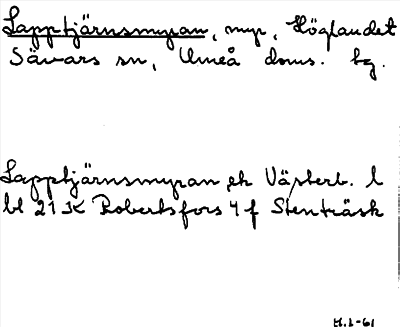 Lapptjärnsmyran, myr, Höglandet
Sävars sn, Umeå doms. hg.
Lapptjärnsmyran ek Västerb. l
bl 21 K Robertsfors 4 f Stenträsk
H.L-61